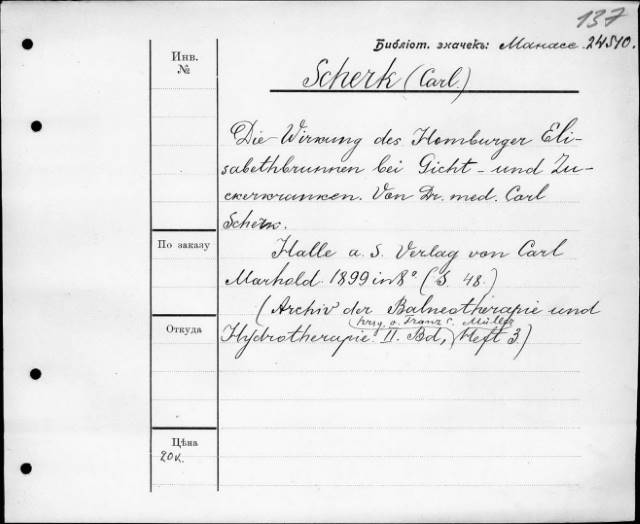 137
Библіот. значекъ: Манасс. 24510.
Инв.
№
Scherk (Carl.)
Die Wirkung des Homburger Eli-
sabethbrunnen bei Gicht - und Zu-
ckerkranken. Von Dr. med. Carl
Scherk.
По заказу
Halle a. S. Verlag von Carl
Marhold. 1899 in 8°. (S. 48.)
(Archiv der Balneotherapie und
hrsg. v. Franz C. Müller
Откуда
Hydrotherapie. II. Bd, Heft 3.)
Цѣна
20к.